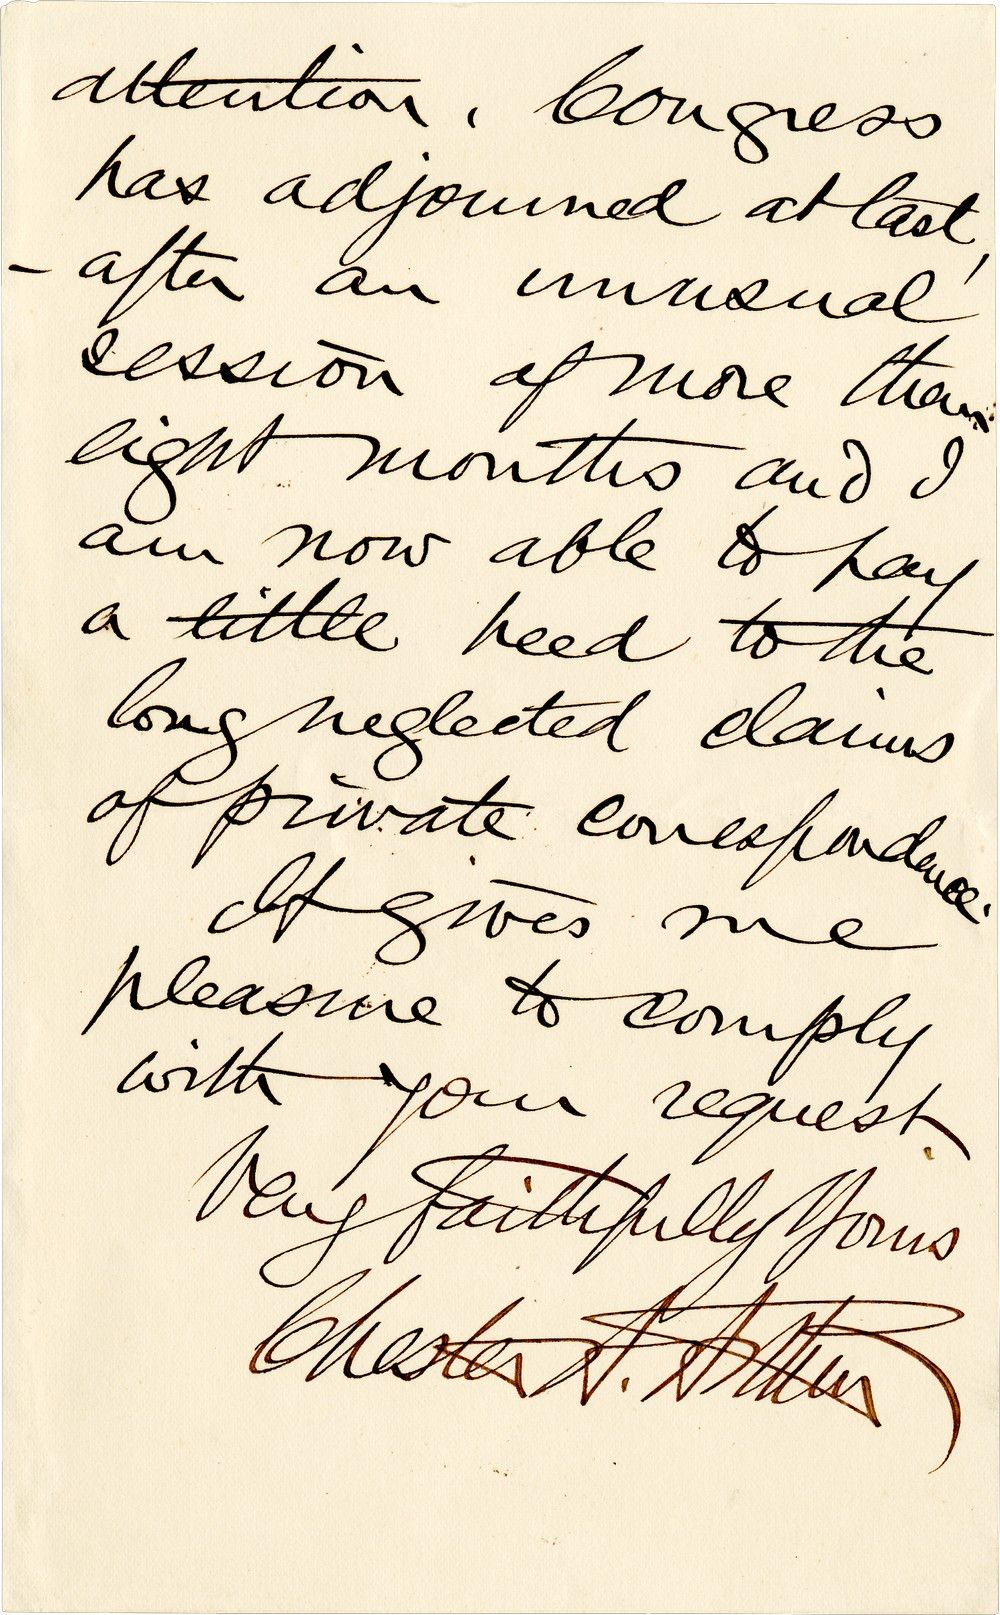 attention. Congress
has adjourned at last,
- after an unusual
session of more than
eight months and I
am now able to pay
a little heed to the
long neglected claims
of private correspondence.
It gives me
pleasure to comply
with your request.
Very faithfully Yours
Chester A. Arthur